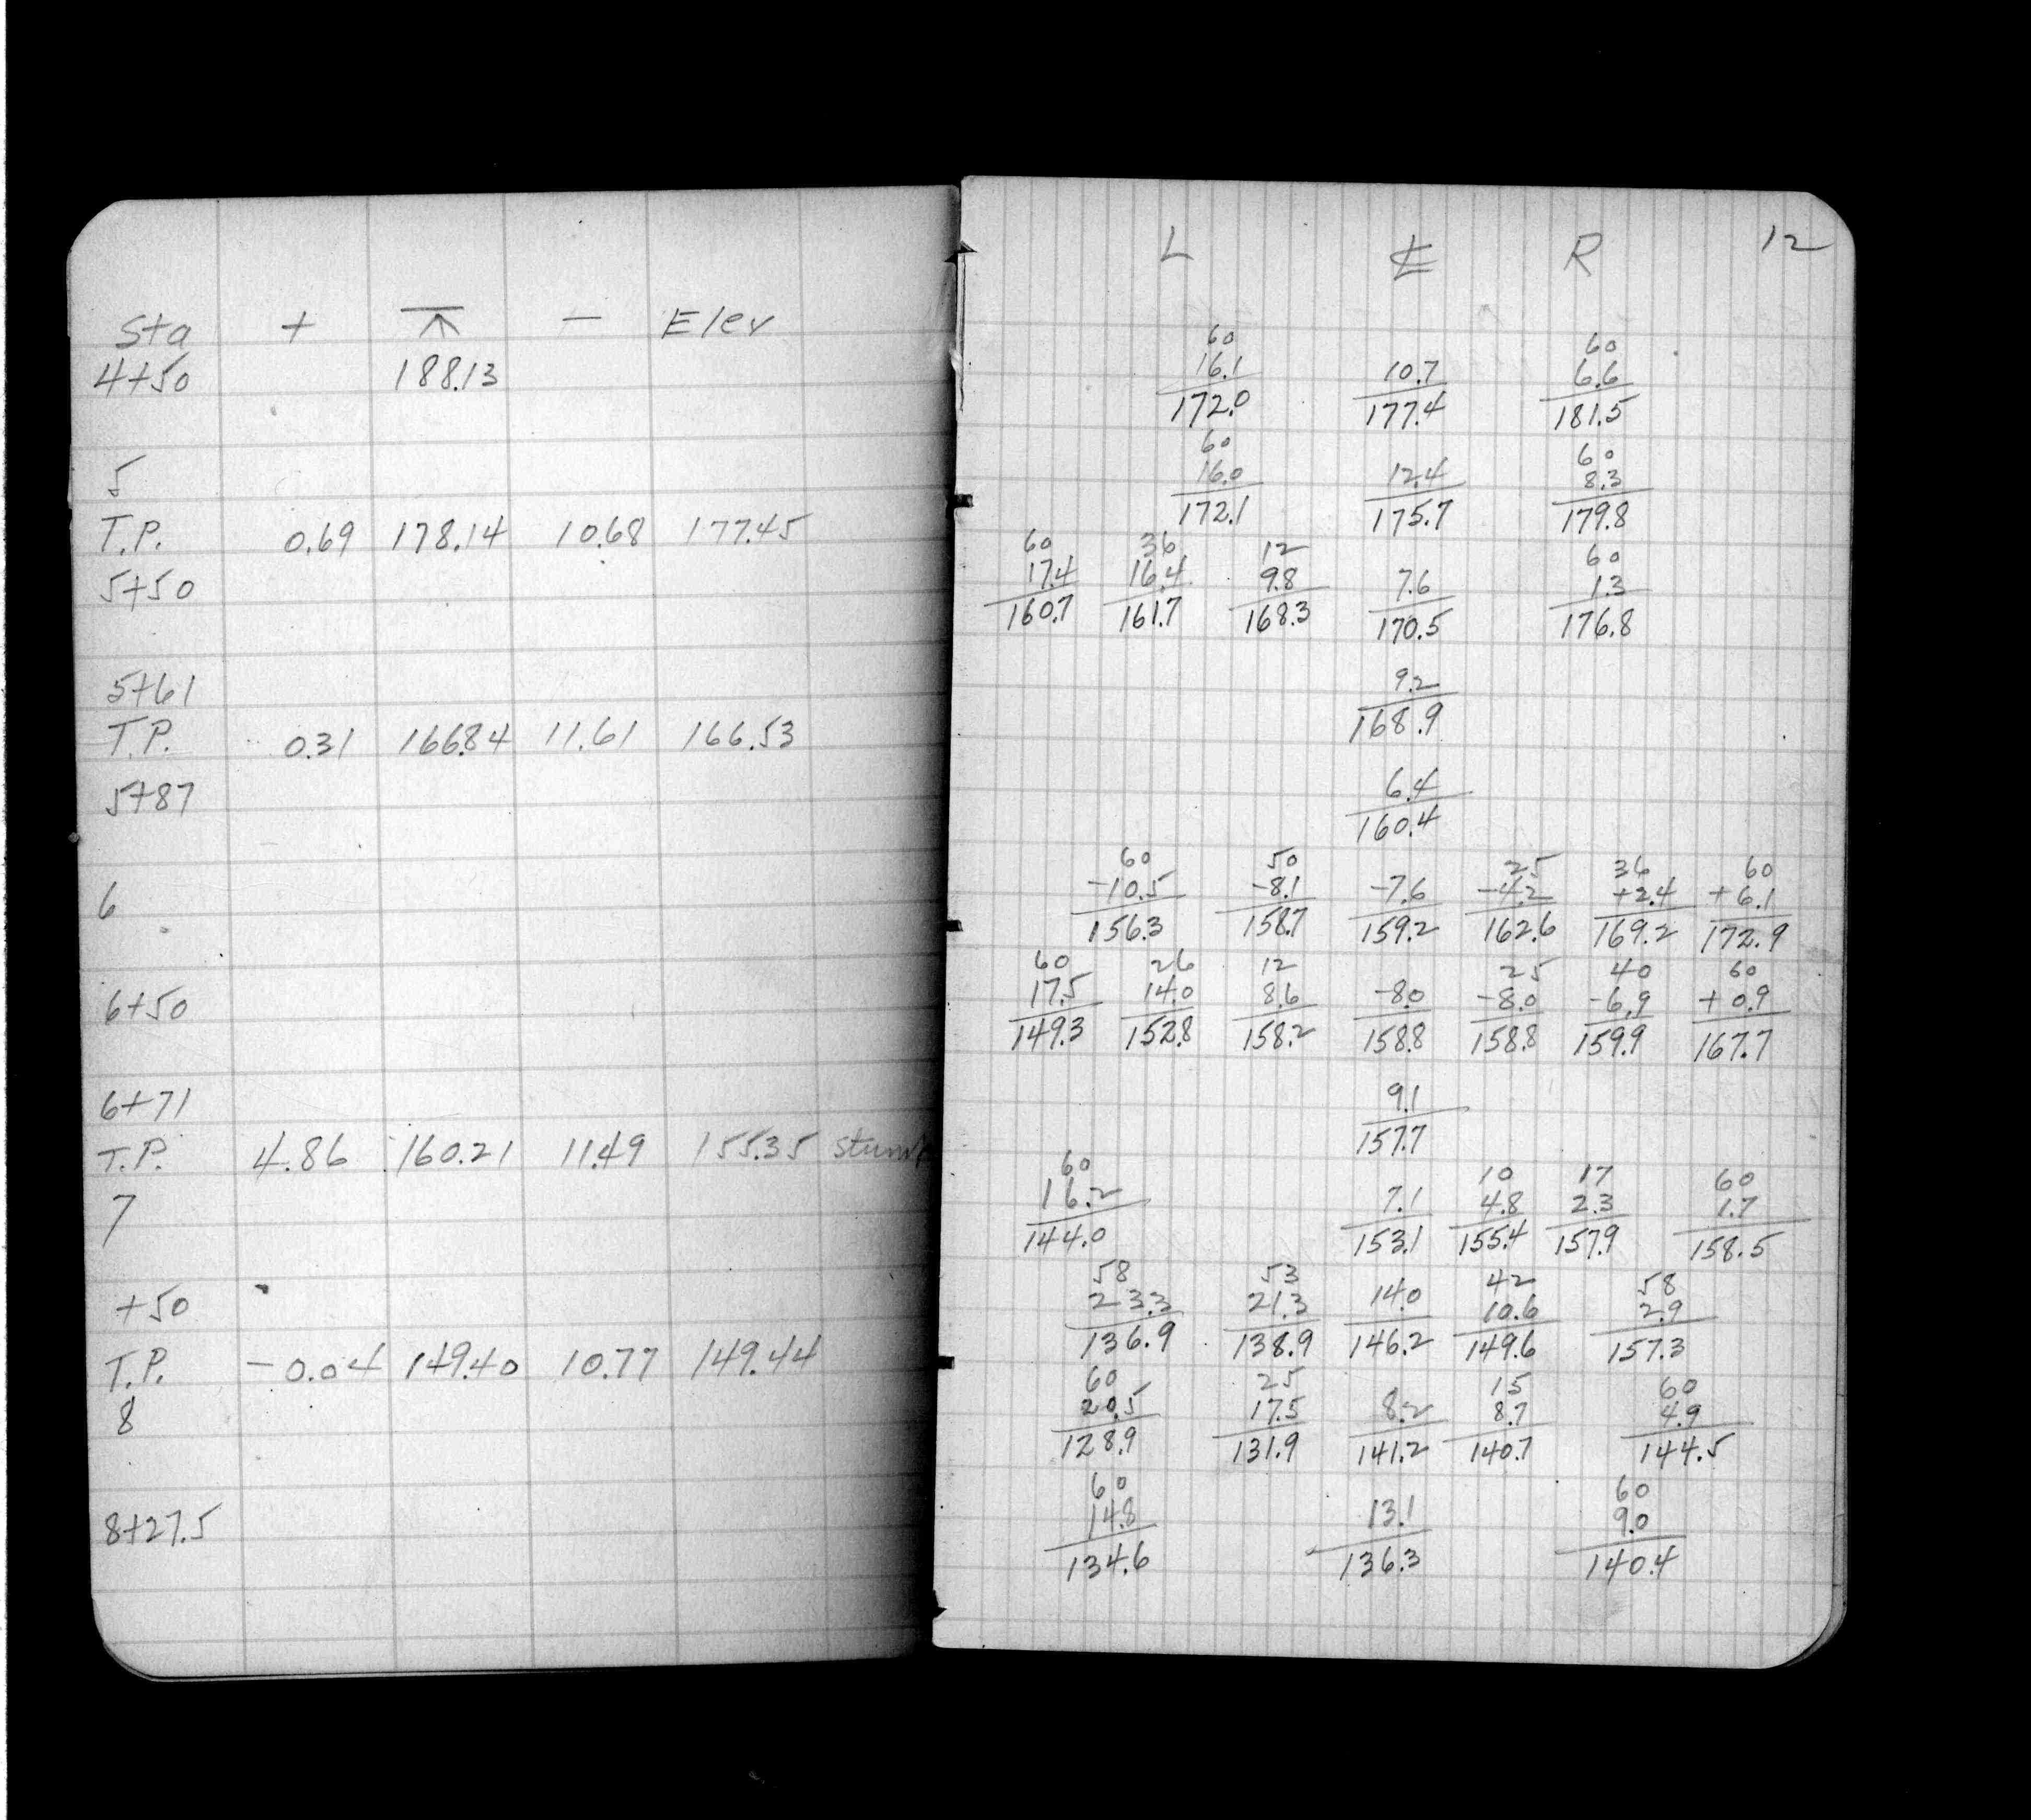 Sta + ⊼ − Elev
4+50 188.13
5
T.P. 0.69 178.14 10.68 177.45
5+50
5+61
T.P. 0.31 166.84 11.61 166.53
5+87
6
6+50
6+71
T.P. 4.86 160.21 11.49 155.35 Stump
7
+50
T.P. −0.04 149.40 10.77 149.44
8
8+27.5
L ℄ R 12
60 60
16.1 10.7 6.6
172.0 177.4 181.5
60 60
16.0 12.4 8.3
172.1 175.7 179.8
60 36 12 60
17.4 16.4 9.8 7.6 1.3
160.7 161.7 168.3 170.5 176.8
9.2
168.9
6.4
160.4
60 50 25 36 60
−10.5 −8.1 −7.6 −4.2 +2.4 +6.1
156.3 158.7 159.2 162.6 169.2 172.9
60 26 12 25 40 60
17.5 14.0 8.6 −8.0 −8.0 −6.9 +0.9
149.3 152.8 158.2 158.8 158.8 159.9 167.7
9.1
157.7
60 10 17 60
16.2 7.1 4.8 2.3 1.7
144.0 153.1 155.4 157.9 158.5
58 53 42 58
23.3 21.3 14.0 10.6 2.9
136.9 138.9 146.2 149.6 157.3
60 25 15 60
20.5 17.5 8.2 8.7 4.9
128.9 131.9 141.2 140.7 144.5
60 60
14.8 13.1 9.0
134.6 136.3 140.4